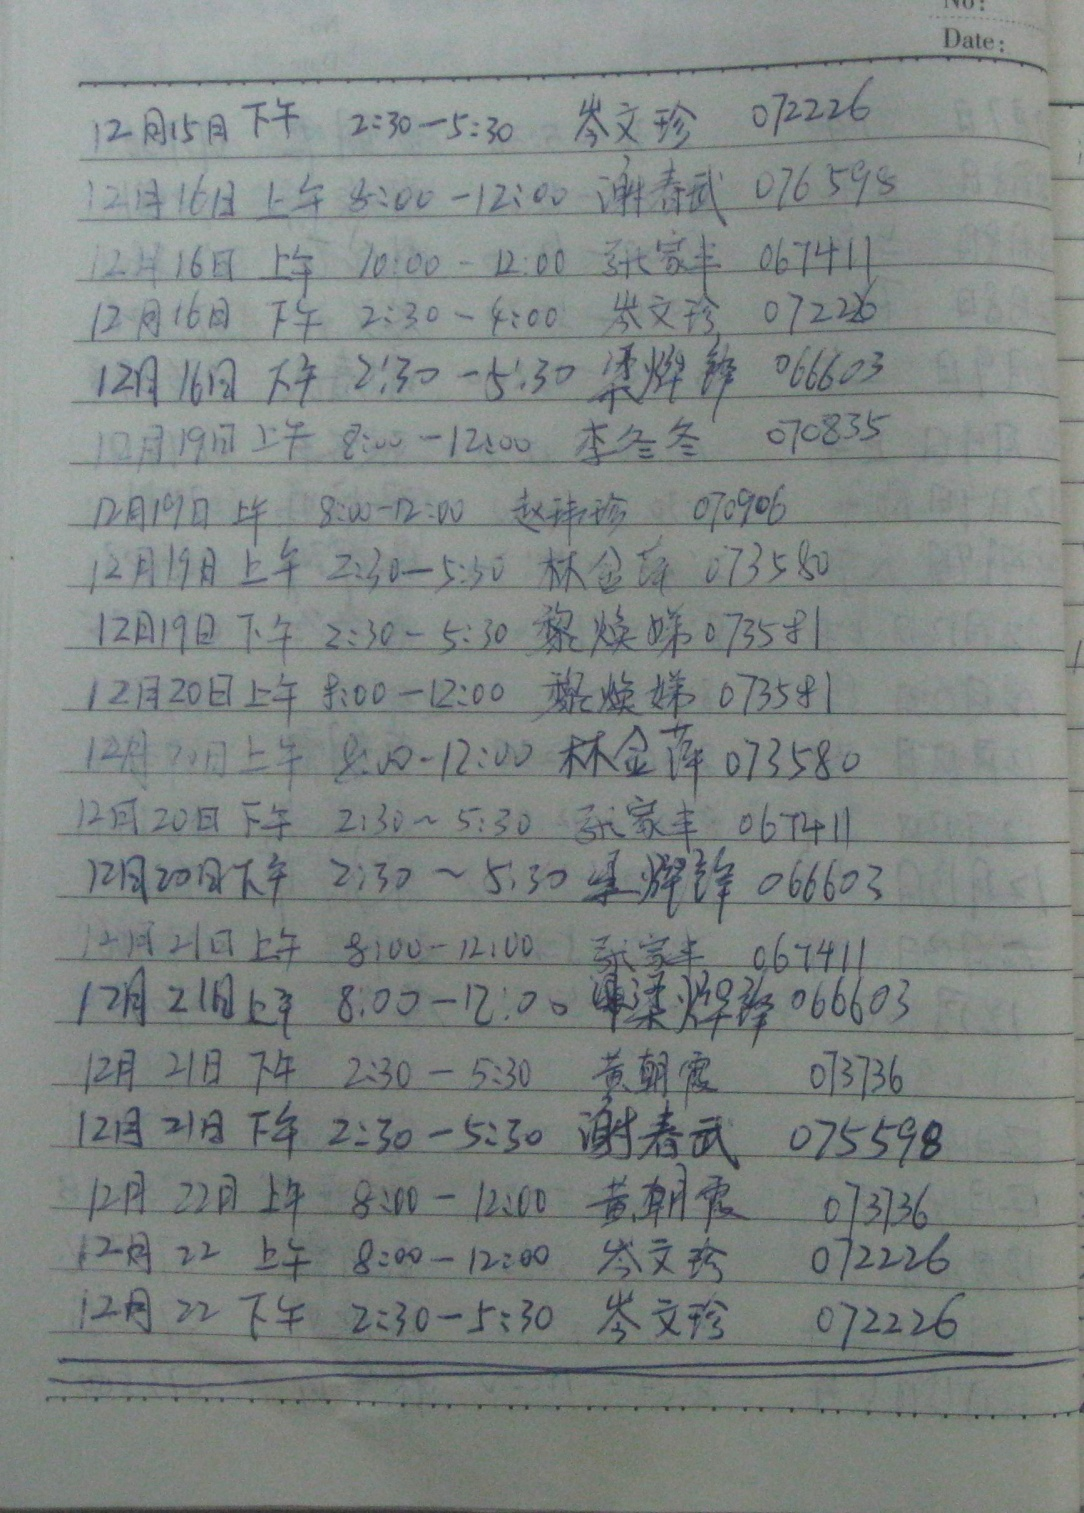 No:
Date:
12月15日 下午 2:30—5:30 岑文珍 072226
12月16日 上午 8:00—12:00 谢春武 076598
12月16日 上午 10:00—12:00 张家丰 067411
12月16日 下午 2:30—4:00 岑文珍 07226
12月16日 下午 2:30—5:30 梁燦锋 066603
12月19日 上午 8:00—12:00 李冬冬 070835
12月19日 上午 8:00—12:00 赵玮珍 070906
12月19日 上午 2:30—5:30 林金萍 073580
12月19日 下午 2:30—5:30 黎焕娣 073581
12月20日 上午 8:00—12:00 黎焕娣 073581
12月20日 上午 8:00—12:00 林金萍 073580
12月20日 下午 2:30~5:30 张家丰 067411
12月20日 下午 2:30~5:30 梁 锋 066603
12月21日 上午 8:00—12:00 张家丰 067411
12月21日 上午 8:00—12:00 梁 锋 066603
12月21日 下午 2:30—5:30 黄朝霞 073736
12月21日 下午 2:30—5:30 谢春武 075598
12月22日 上午 8:00—12:00 黄朝霞 073736
12月22 上午 8:00—12:00 岑文珍 072226
12月22 下午 2:30—5:30 岑文珍 072226